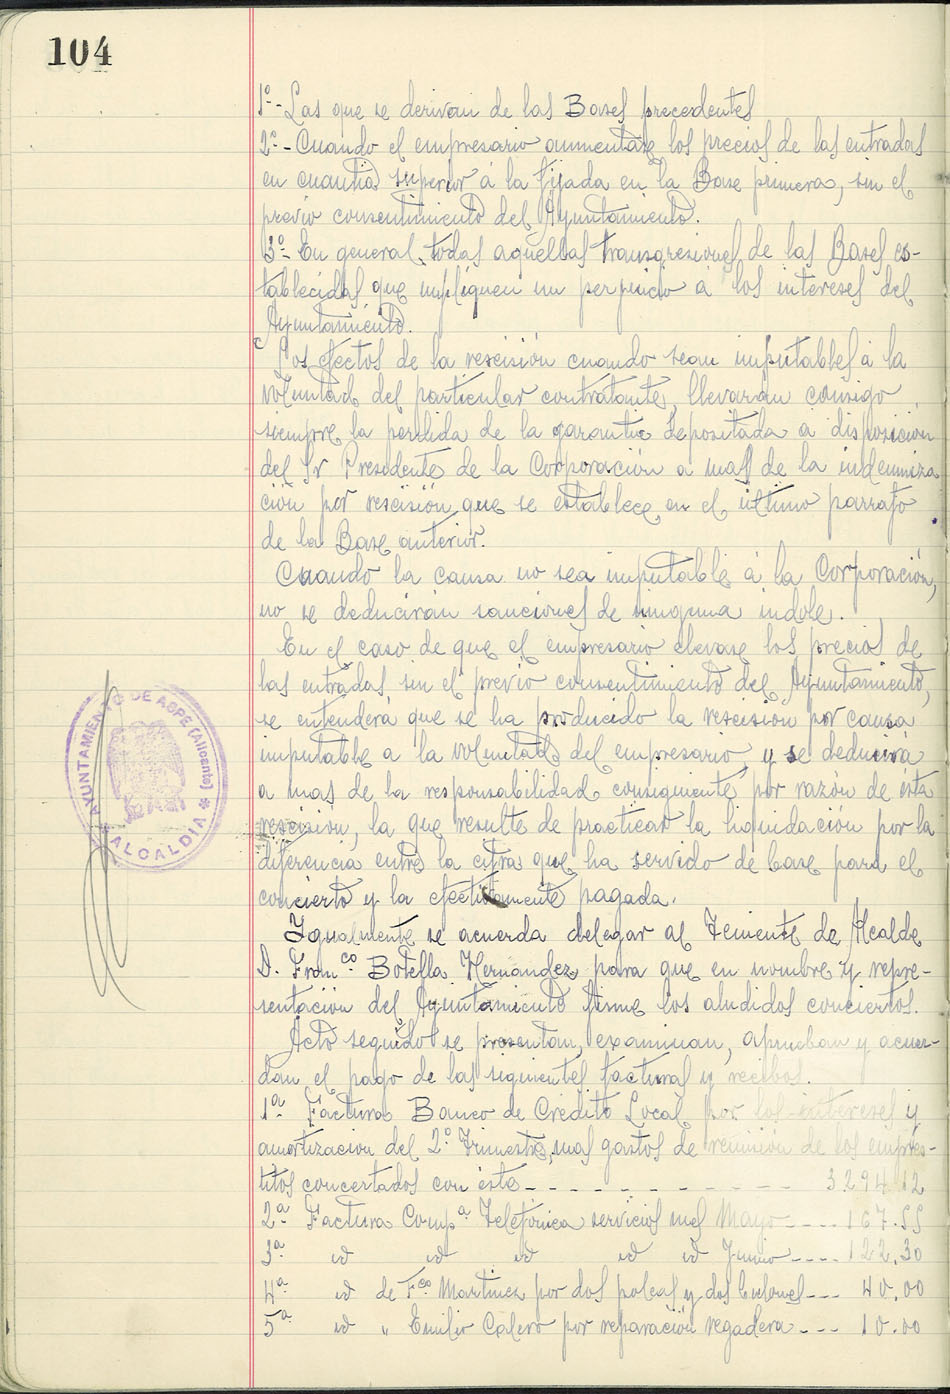 104
1º- Las que se derivan de las Bases precedentes
2º- Cuando el empresario aumentase los precios de las entradas
en cuantia superior á la fijada en la Base primera, sin el
previo consentimiento del Ayuntamiento.
3º- En general, todas aquellas transgresiones de las Bases es-
tablecidas que impliquen un perjuicio a los intereses del
Ayuntamiento.
Los efectos de la rescisión cuando sean imputables á la
voluntad del particular contratante, llevarán consigo
siempre la perdida de la garantia depositada a disposicion
del Sr Presidente de la Corporación a mas de la indemniza
ción por rescisión que se establece en el último parrafo
de la Base anterior.
Cuando la causa no sea imputable á la Corporación,
no se deducirán sanciones de ninguna indole.
En el caso de que el empresario elevase los precios de
las entradas sin el previo consentimiento del Ayuntamiento,
se entenderá que se ha producido la rescision por causa
imputable a la voluntad del empresario, y se deducirá
a mas de la responsabilidad consiguiente por razón de ésta
rescision, la que resulte de practicar la liquidación por la
diferencia entre la cifra que ha servido de base para el
concierto y la efectivamente pagada.
AYUNTAMIENTO DE ASPE (Alicante)
ALCALDIA
Igualmente se acuerda delegar al Teniente de Alcalde
D. Franco Botella Hernández para que en nombre y repre-
sentación del Ayuntamiento firme los aludidos conciertos.
Acto seguido se presentan, examinan, aprueban y acuer-
dan el pago de las siguientes facturas y recibos.
1ª Factura Banco de Crédito Local por los intereses y
amortizacion del 2º Trimestre, mas gastos de remision de los emprés-
titos concertados con éste - - - - - - - - - - 3294.12
2ª Factura Compª Telefónica servicios mes Mayo - - - - 167.55
3ª id id id id id Junio - - - - 122.30
4ª id de Fco Martinez por dos poleas y dos - - - 40.00
5ª id " Emilio Calero por reparación regadera - - - 10.00